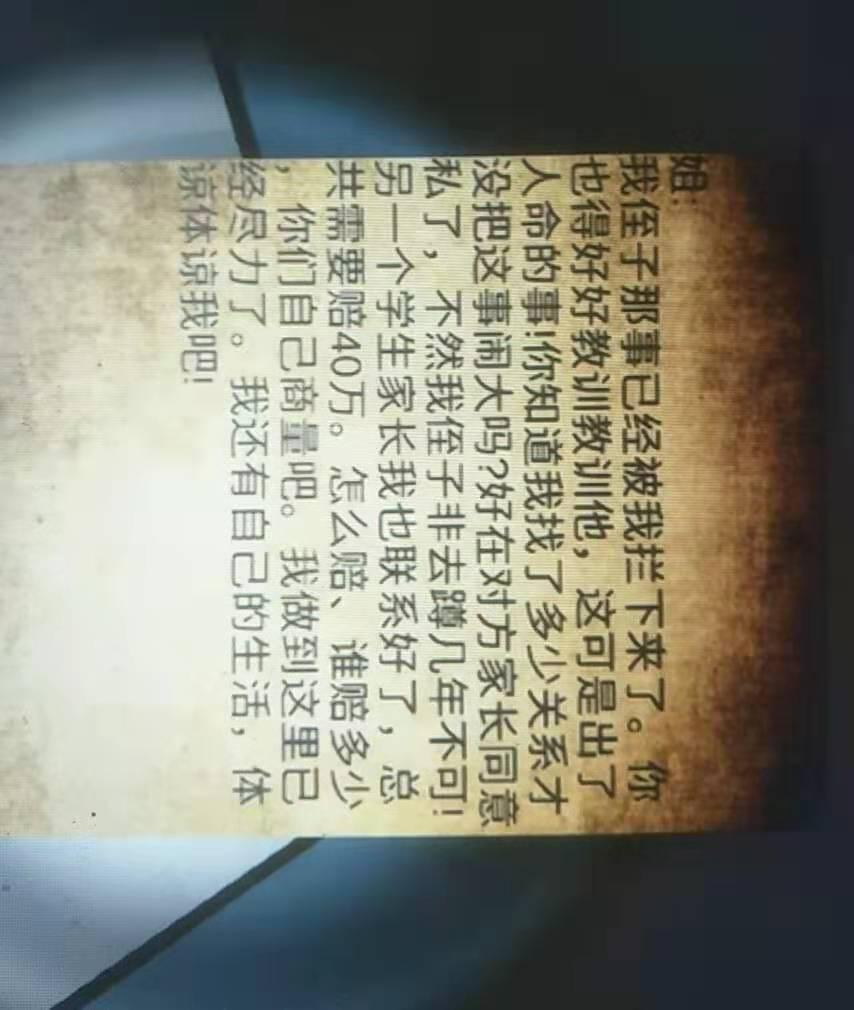 姐:
我侄子那事已经被我拦下来了。你
也得好好教训教训他，这可是出了
人命的事!你知道我找了多少关系才
没把这事闹大吗?好在对方家长同意
私了，不然我侄子非去蹲几年不可!
另一个学生家长我也联系好了，总
共需要赔40万。怎么赔、谁赔多少
，你们自己商量吧。我做到这里已
经尽力了。我还有自己的生活，体
谅体谅我吧!